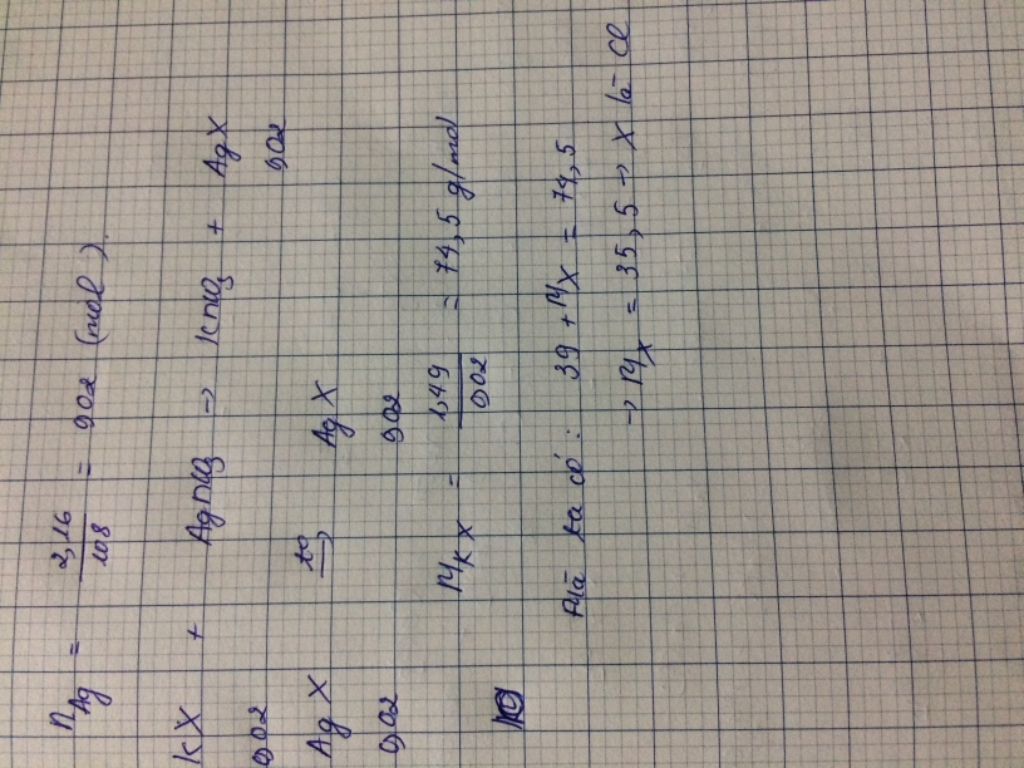 n_Ag = 2,16/108 = 0,02 (mol).
KX + AgNO3 → KNO3 + AgX
0,02 0,02
AgX t° → AgX
0,02 0,02
M_KX = 1,49/0,02 = 74,5 g/mol
Mà ta có: 39 + M_X = 74,5
→ M_X = 35,5 → X là Cl